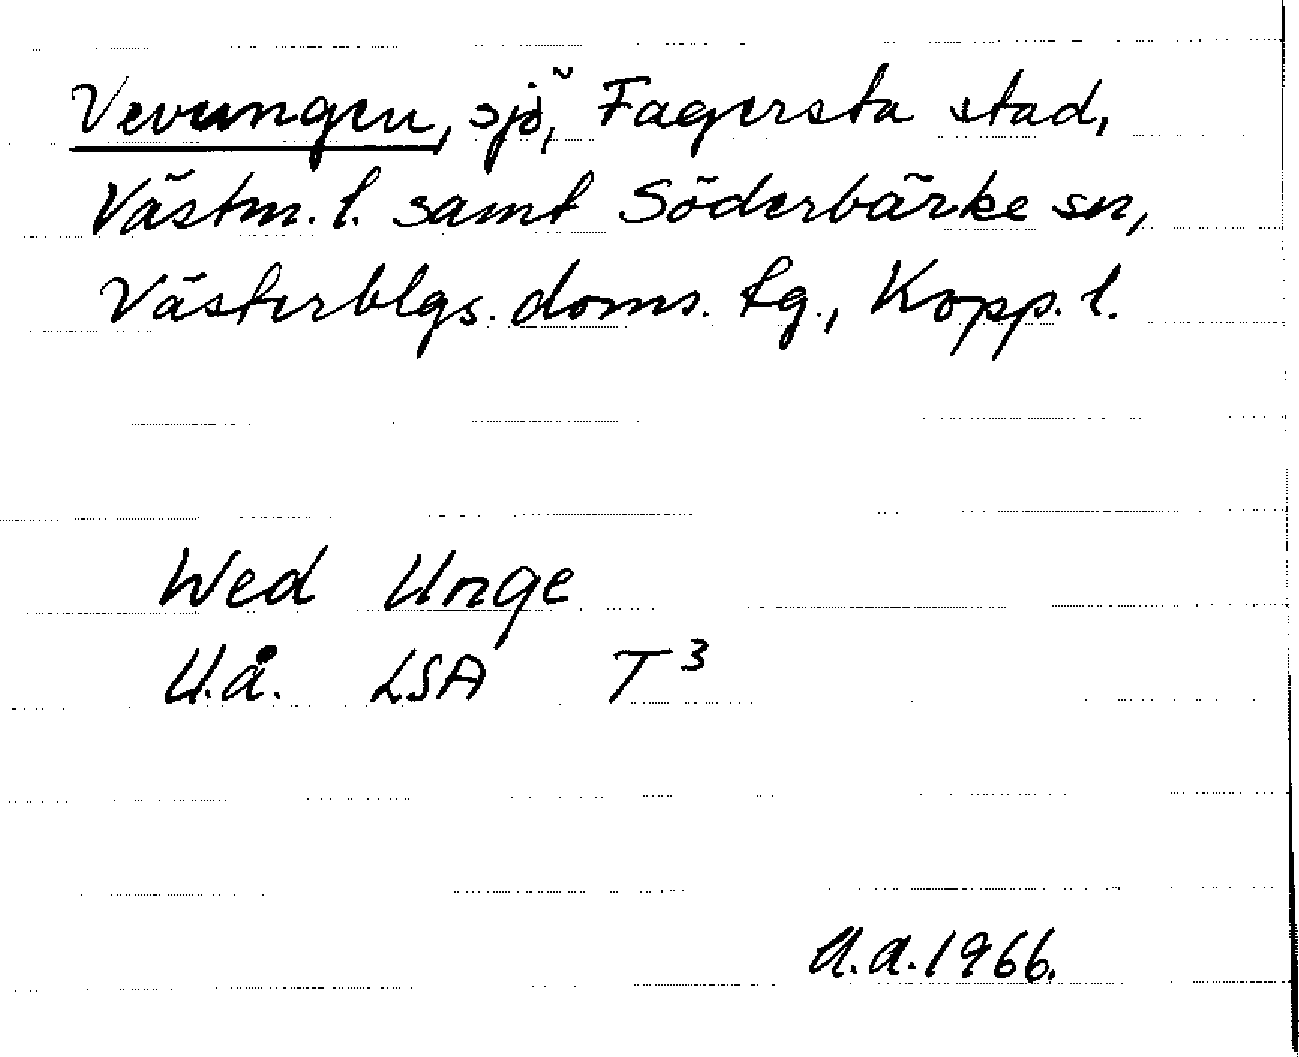 Vevungen, sjö, Fagersta stad,
Västm. l. samt Söderbärke sn,
Västerblgs. doms. tg., Kopp. l.
Wed Unge
U.å. LSA T³
A.A. 1966.